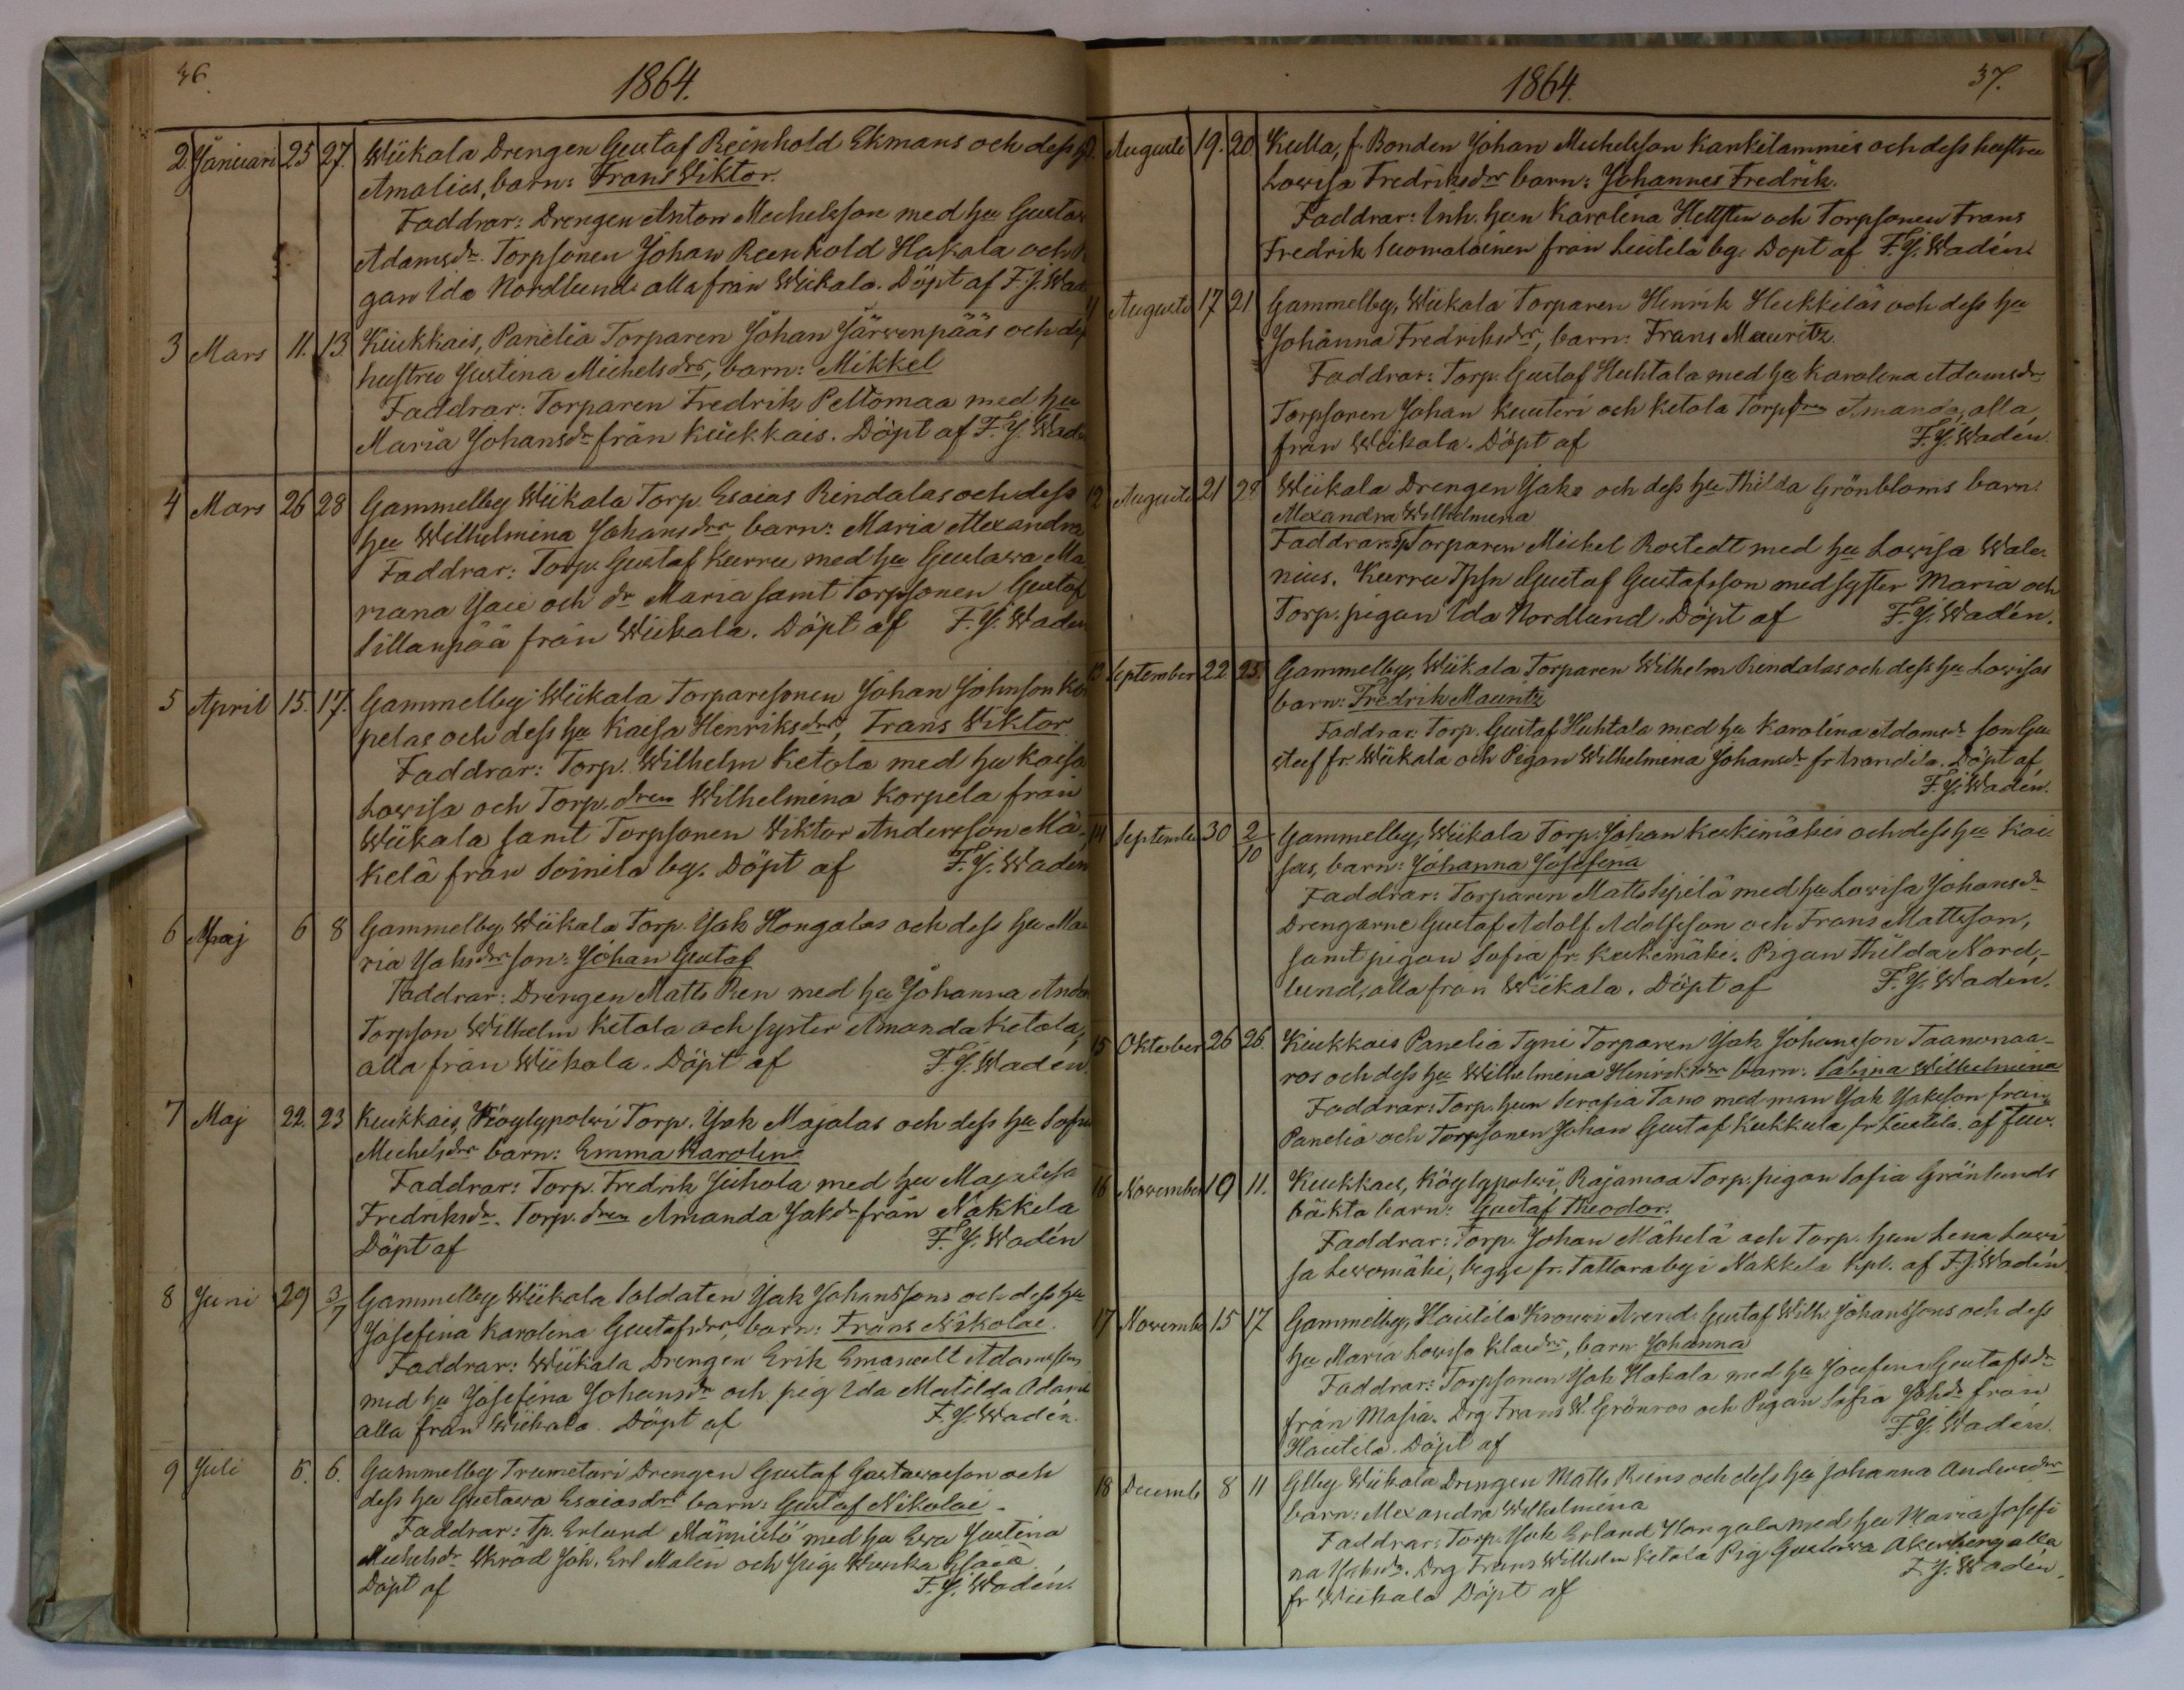 36.
1864.
2 Januari 25 27. Wiikala Drengen Gustaf Reinhold Ekmans och dess
Amalias, barn: Frans Wiktor.
Faddrar: Drengen Anton Michelsson med hu Gustav
Adamsdr. Torpsonen Johan Reinhold Hakala och
gan Ida Nordlund alla från Wiikala. Döpt af F. J. Wad
3 Mars 11. 13. Kiukkais, Panelia Torparen Johan Järwenpääs och
hustru Justina Michelsdrs, barn: Mikkel
Faddrar: Torparen Fredrik Peltomaa med hu
Maria Johansdr från Kiukkais. Döpt af F. J. Wad
4 Mars 26 28 Gammelby Wiikala Torp. Esaias Rindalas och dess
hu Wilhelmina Johansdrs barn: Maria Alexandra
Faddrar: Torp. Gustaf Kurru med hu Gustawa Ma
riana och dr Maria samt Torpsonen Gustaf
Sillanpää från Wiikala. Döpt af F. J. Waden
5 April 15. 17. Gammelby Wiikala Torparesonen Johan Johnson Ko
pelas och dess hu Kaisa Henriksdrs, Frans Wiktor
Faddrar: Torp. Wilhelm Ketola med hu Kaisa
Lowisa och Torp. dren Wilhelmina Korpela från
Wiikala samt Torpsonen Wiktor Andersson Mä-
kelä från Soinila by. Döpt af F. J. Waden
6 Maj 6 8 Gammelby Wiikala Torp. Jak Hongalas och dess hu Ma
ria Jaksdrs son: Johan Gustaf
Faddrar: Drengen Matts Ren med hu Johanna And
Torpson Wilhelm Ketola och syster Amanda Ketola,
alla från Wiikala. Döpt af F. J. Wadén.
7 Maj 22. 23 Kiukkais, Köylypolwi Torp. Jak Majalas och dess hu Sofia
Michelsdrs barn: Emma Karolina
Faddrar: Torp. Fredrik Juhola med hu Maja Lisa
Fredriksdr. Torp. dren Amanda Jakdr från Nakkila
Döpt af F. J. Wadén
8 Juni 29 3/7 Gammelby Wiikala Soldaten Jak Johanssons och dess hu
Josefina Karolina Gustafsdrs, barn: Frans Nikolai.
Faddrar: Wiikala Drengen Erik Emanuelt Adamsson
med hu Josefina Johansdr och pig Ida Matilda Adams
alla från Wiikala. Döpt af F. J. Wadén.
9 Juli 5. 6. Gammelby Trumetari Drengen Gustaf Gustawsson och
dess hu Gustawa Esaiasdrs barn: Gustaf Nikolai.
Faddrar: Tp. Erlund Männistö med hu Ewa Justina
Michelsdr Skräd Joh. Erl Malin och Pig.
Döpt af F. J. Wadén.
37.
1864.
Augusti 19. 20 Kulla, f. Bonden Johan Michelsson Kankilammis och dess hustru
Lowisa Fredriksdrs barn: Johannes Fredrik.
Faddrar: Inh. hun Karolina Hellsten och Torpsonen Frans
Fredrik Suomalainen från Leistilä by. Döpt af F. J. Wadén.
11 Augusti 17 21 Gammelby, Wiikala Torparen Henrik Heikkiläs och dess hu
Johanna Fredriksdrs, barn: Frans Mauritz.
Faddrar: Torp. Gustaf Huhtala med hu Karolina Adamsdr
Torpsonen Johan Kuuteri och Ketola Torpdren Amanda, alla
från Wiikala. Döpt af F. J. Wadén.
12 Augusti 21 28 Wiikala Drengen Jaks och dess hu Thilda Grönbloms barn:
Alexandra Wilhelmina
Faddrar: Torparen Michel Rostedt med hu Lowisa Wale-
nius. Kurru Tpsn Gustaf Gustafsson med syster Maria och
Torp. pigan Ida Nordlund. Döpt af F. J. Wadén.
13 September 22 25. Gammelby, Wiikala Torparen Wilhelm Rindalas och dess hu Lowisas
barn: Fredrik Mauritz
Faddrar: Torp. Gustaf Huhtala med hu Karolina Adamsdr son Gu
staf fr. Wiikala och Pigan Wilhelmina Johansdr fr. Arandila. Döpt af
F. J. Wadén.
14 September 30 2/10 Gammelby, Wiikala Torp. Johan Keskimäkis och dess hu Kai
sas, barn: Johanna Josefina
Faddrar: Torparen Matts Sipilä med hu Lowisa Johansdr
Drengarne Gustaf Adolf Adolfsson och Frans Mattsson,
samt pigan Sofia fr. Keskimäki. Pigan Thilda Nord-
lund, alla från Wiikala. Döpt af F. J. Wadén.
15 Oktober 26 26. Kiukkais Panelia Tyni Torparen Jak Johansson Taanonaa-
ros och dess hu Wilhelmina Henriksdrs barn: Sabina Wilhelmina
Faddrar: Torp. hun Serafia Tano med man Jak Jaksson från
Panelia och Torpsonen Johan Gustaf Kukkula fr Leistilä. af FJW.
16 November 10 11. Kiukkais, Köylypolwi, Rajamaa Torp. pigan Sofia Grönlunds
oäkta barn: Gustaf Theodor.
Faddrar: Torp. Johan Mäkelä och Torp. hun Lena Lowi
sa Lewomäki, begge fr. Tattaraby i Nakkila Kpl. af F. J. Wadén
17 Novemb. 15 17 Gammelby, Haistila Krouwi Arend. Gustaf Wilh. Johanssons och dess
hu Maria Lowisa Klasdrs, barn Johanna
Faddrar: Torpsonen Jak Hakala med hu Josefina Gustafsdr
från Masia. Drg Frans W. Grönroos och Pigan Sofia Johdr från
Haistila. Döpt af F. J. Wadén.
18 Decemb. 8 11 Glby Wiikala Drengen Matts Reins och dess hu Johanna Andersdrs
barn: Alexandra Wilhelmina
Faddrar: Torp. Jak Erland Hongala med hu Maria Josefi
na Jaksdr. Drg Frans Wilhelm Ketola Pig Gustawa Åkerberg alla
fr Wiikala Döpt af F. J. Wadén.